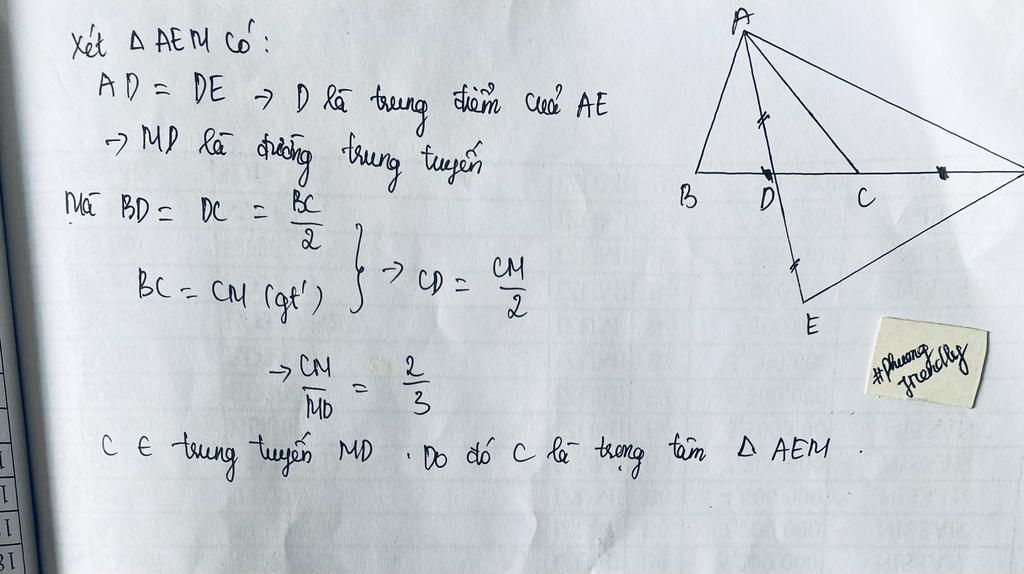 Xét Δ AEM có:
AD = DE → D là trung điểm cuả AE
→ MD là đường trung tuyến
Mà BD = DC = BC/2
BC = CM (gt) } → CD = CM/2
→ CM/MD = 2/3
C ∈ trung tuyến MD . Do đó C là trọng tâm Δ AEM .
A
B D C
E
#phuong
friendly